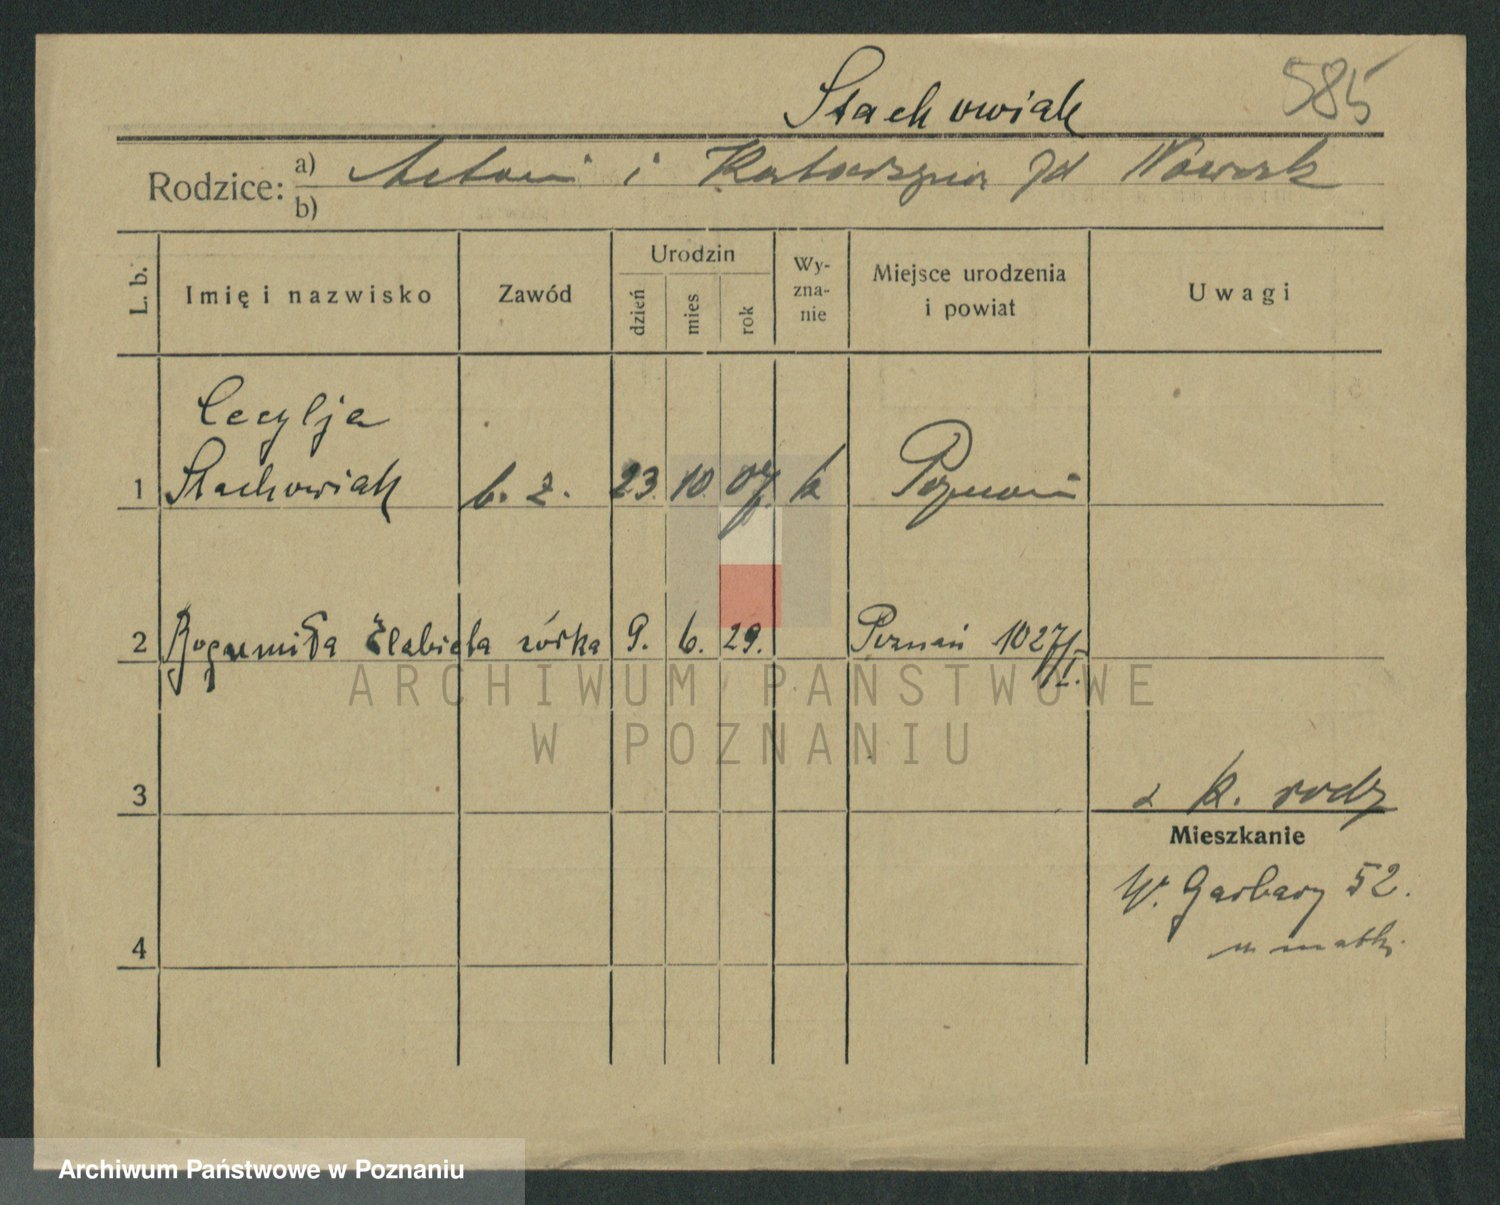 585
Stachowiak
Rodzice: a) Antoni i Katarzyna zd Nowak
b)
L. b. Imię i nazwisko Zawód Urodzin dzień mies rok Wyznanie Miejsce urodzenia i powiat Uwagi
Cecylja
1 Stachowiak b. z. 23. 10. 07. k Poznań
2 Bogumiła Elżbieta córka 9. 6. 29. Poznań 1027/I.
ARCHIWUM PAŃSTWOWE
W POZNANIU
3 z k. rodz
Mieszkanie
W. Garbary 52.
u matki
4
Archiwum Państwowe w Poznaniu